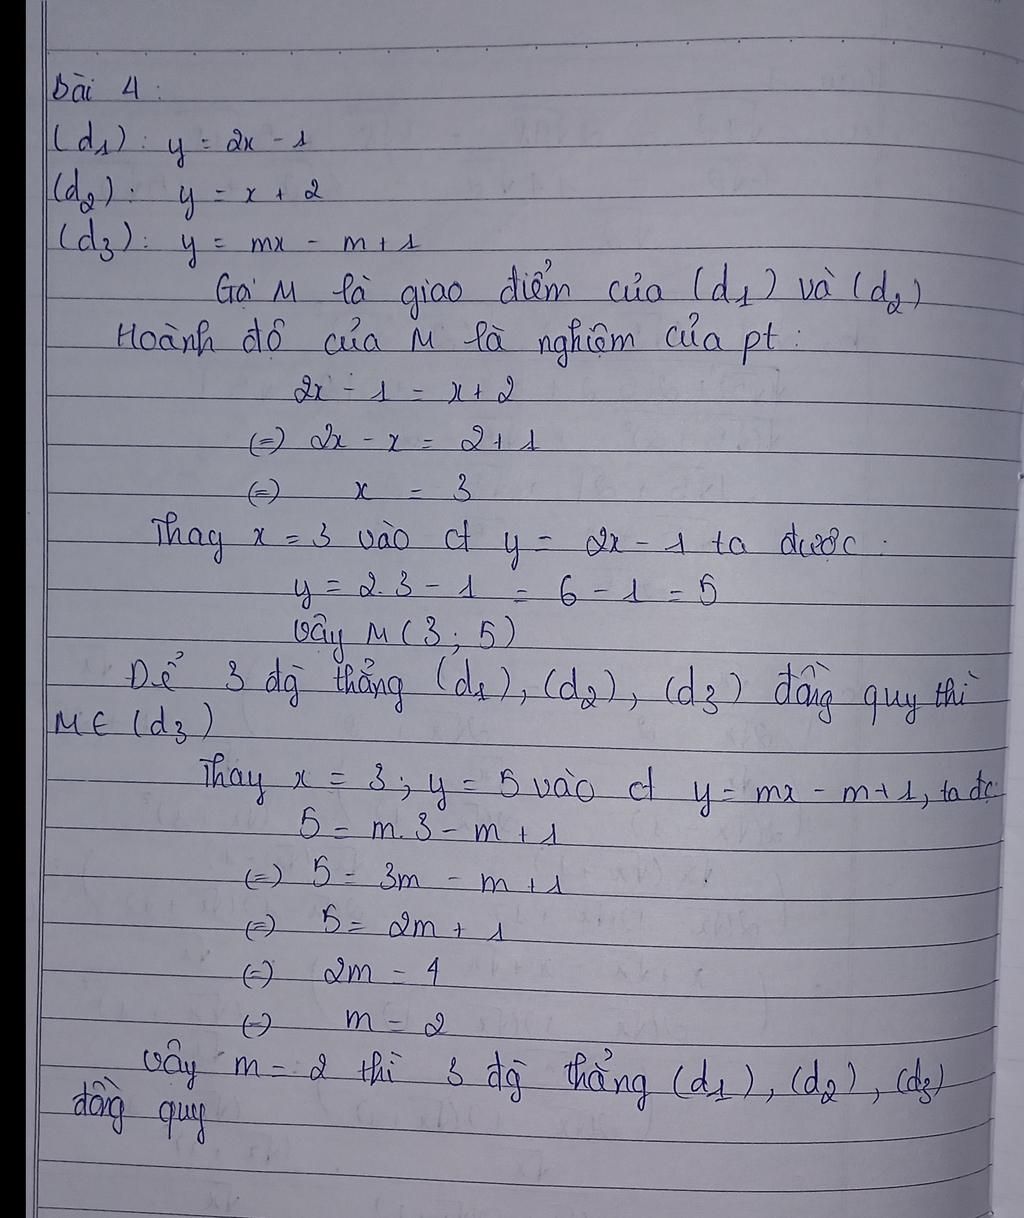 Bài 4:
(d1): y = 2x - 1
(d2): y = x + 2
(d3): y = mx - m + 1
Gọi M là giao điểm của (d1) và (d2)
Hoành độ của M là nghiệm của pt:
2x - 1 = x + 2
(=) 2x - x = 2 + 1
(=) x = 3
Thay x = 3 vào ct y = 2x - 1 ta được:
y = 2.3 - 1 = 6 - 1 = 5
Vậy M(3; 5)
Để 3 đg thẳng (d1), (d2), (d3) đồng quy thì
M ∈ (d3)
Thay x = 3; y = 5 vào ct y = mx - m + 1, ta đc
5 = m.3 - m + 1
(=) 5 = 3m - m + 1
(=) 5 = 2m + 1
(=) 2m = 4
(=) m = 2
Vậy m = 2 thì 3 đg thẳng (d1), (d2), (d3)
đồng quy